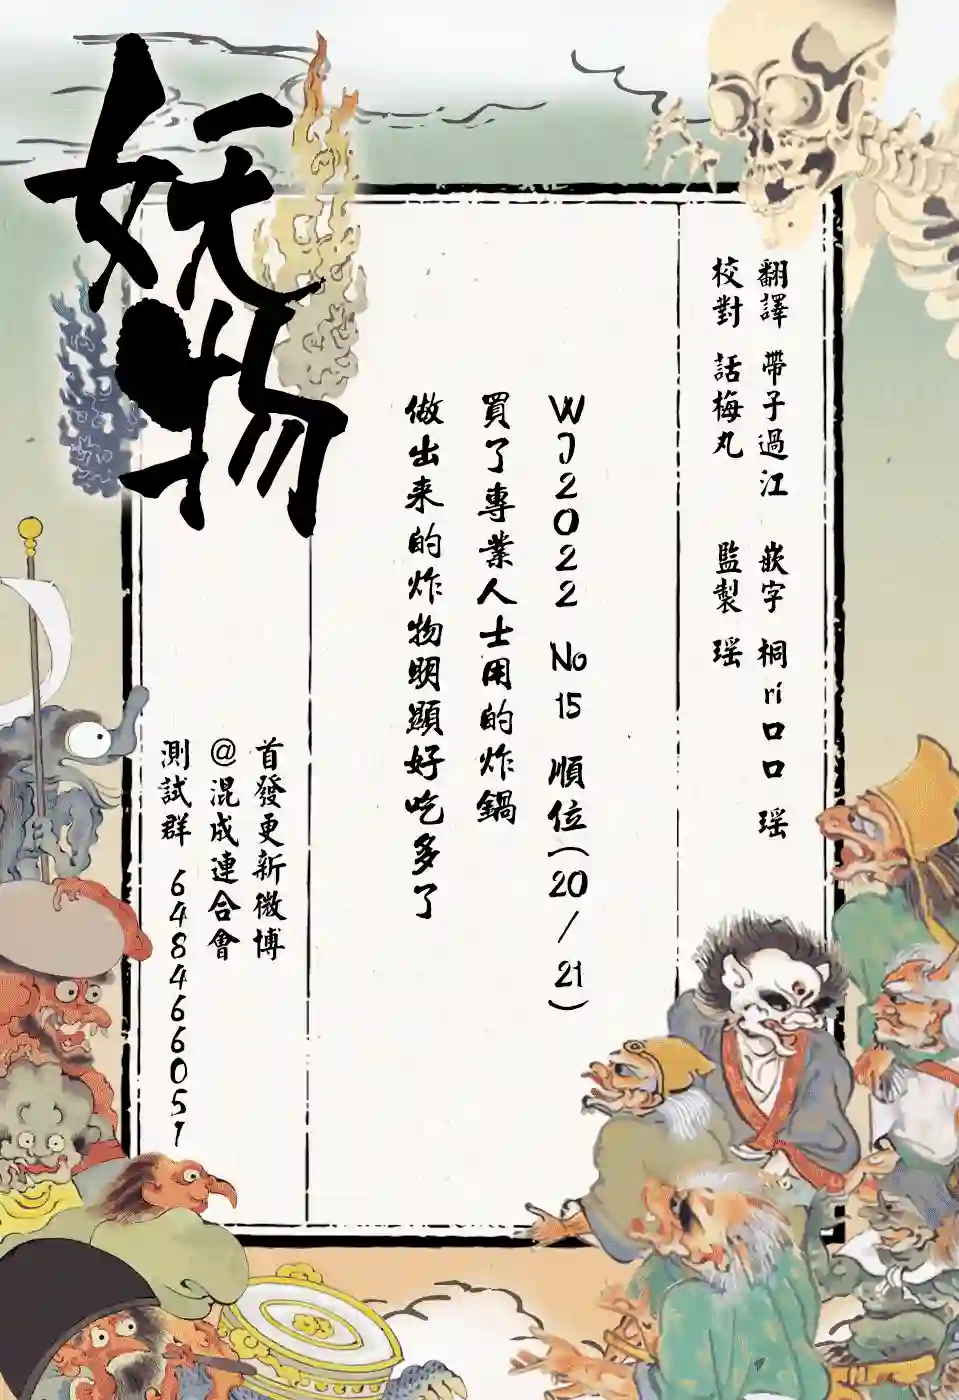 妖物
翻譯 帶子過江 嵌字 桐ri口口 瑶
校對 話梅丸 監製 瑶
WJ2022 No 15 順位(20/21)
買了專業人士用的炸鍋
做出来的炸物明顯好吃多了
首發更新微博
@混成連合會
測試群 648466051